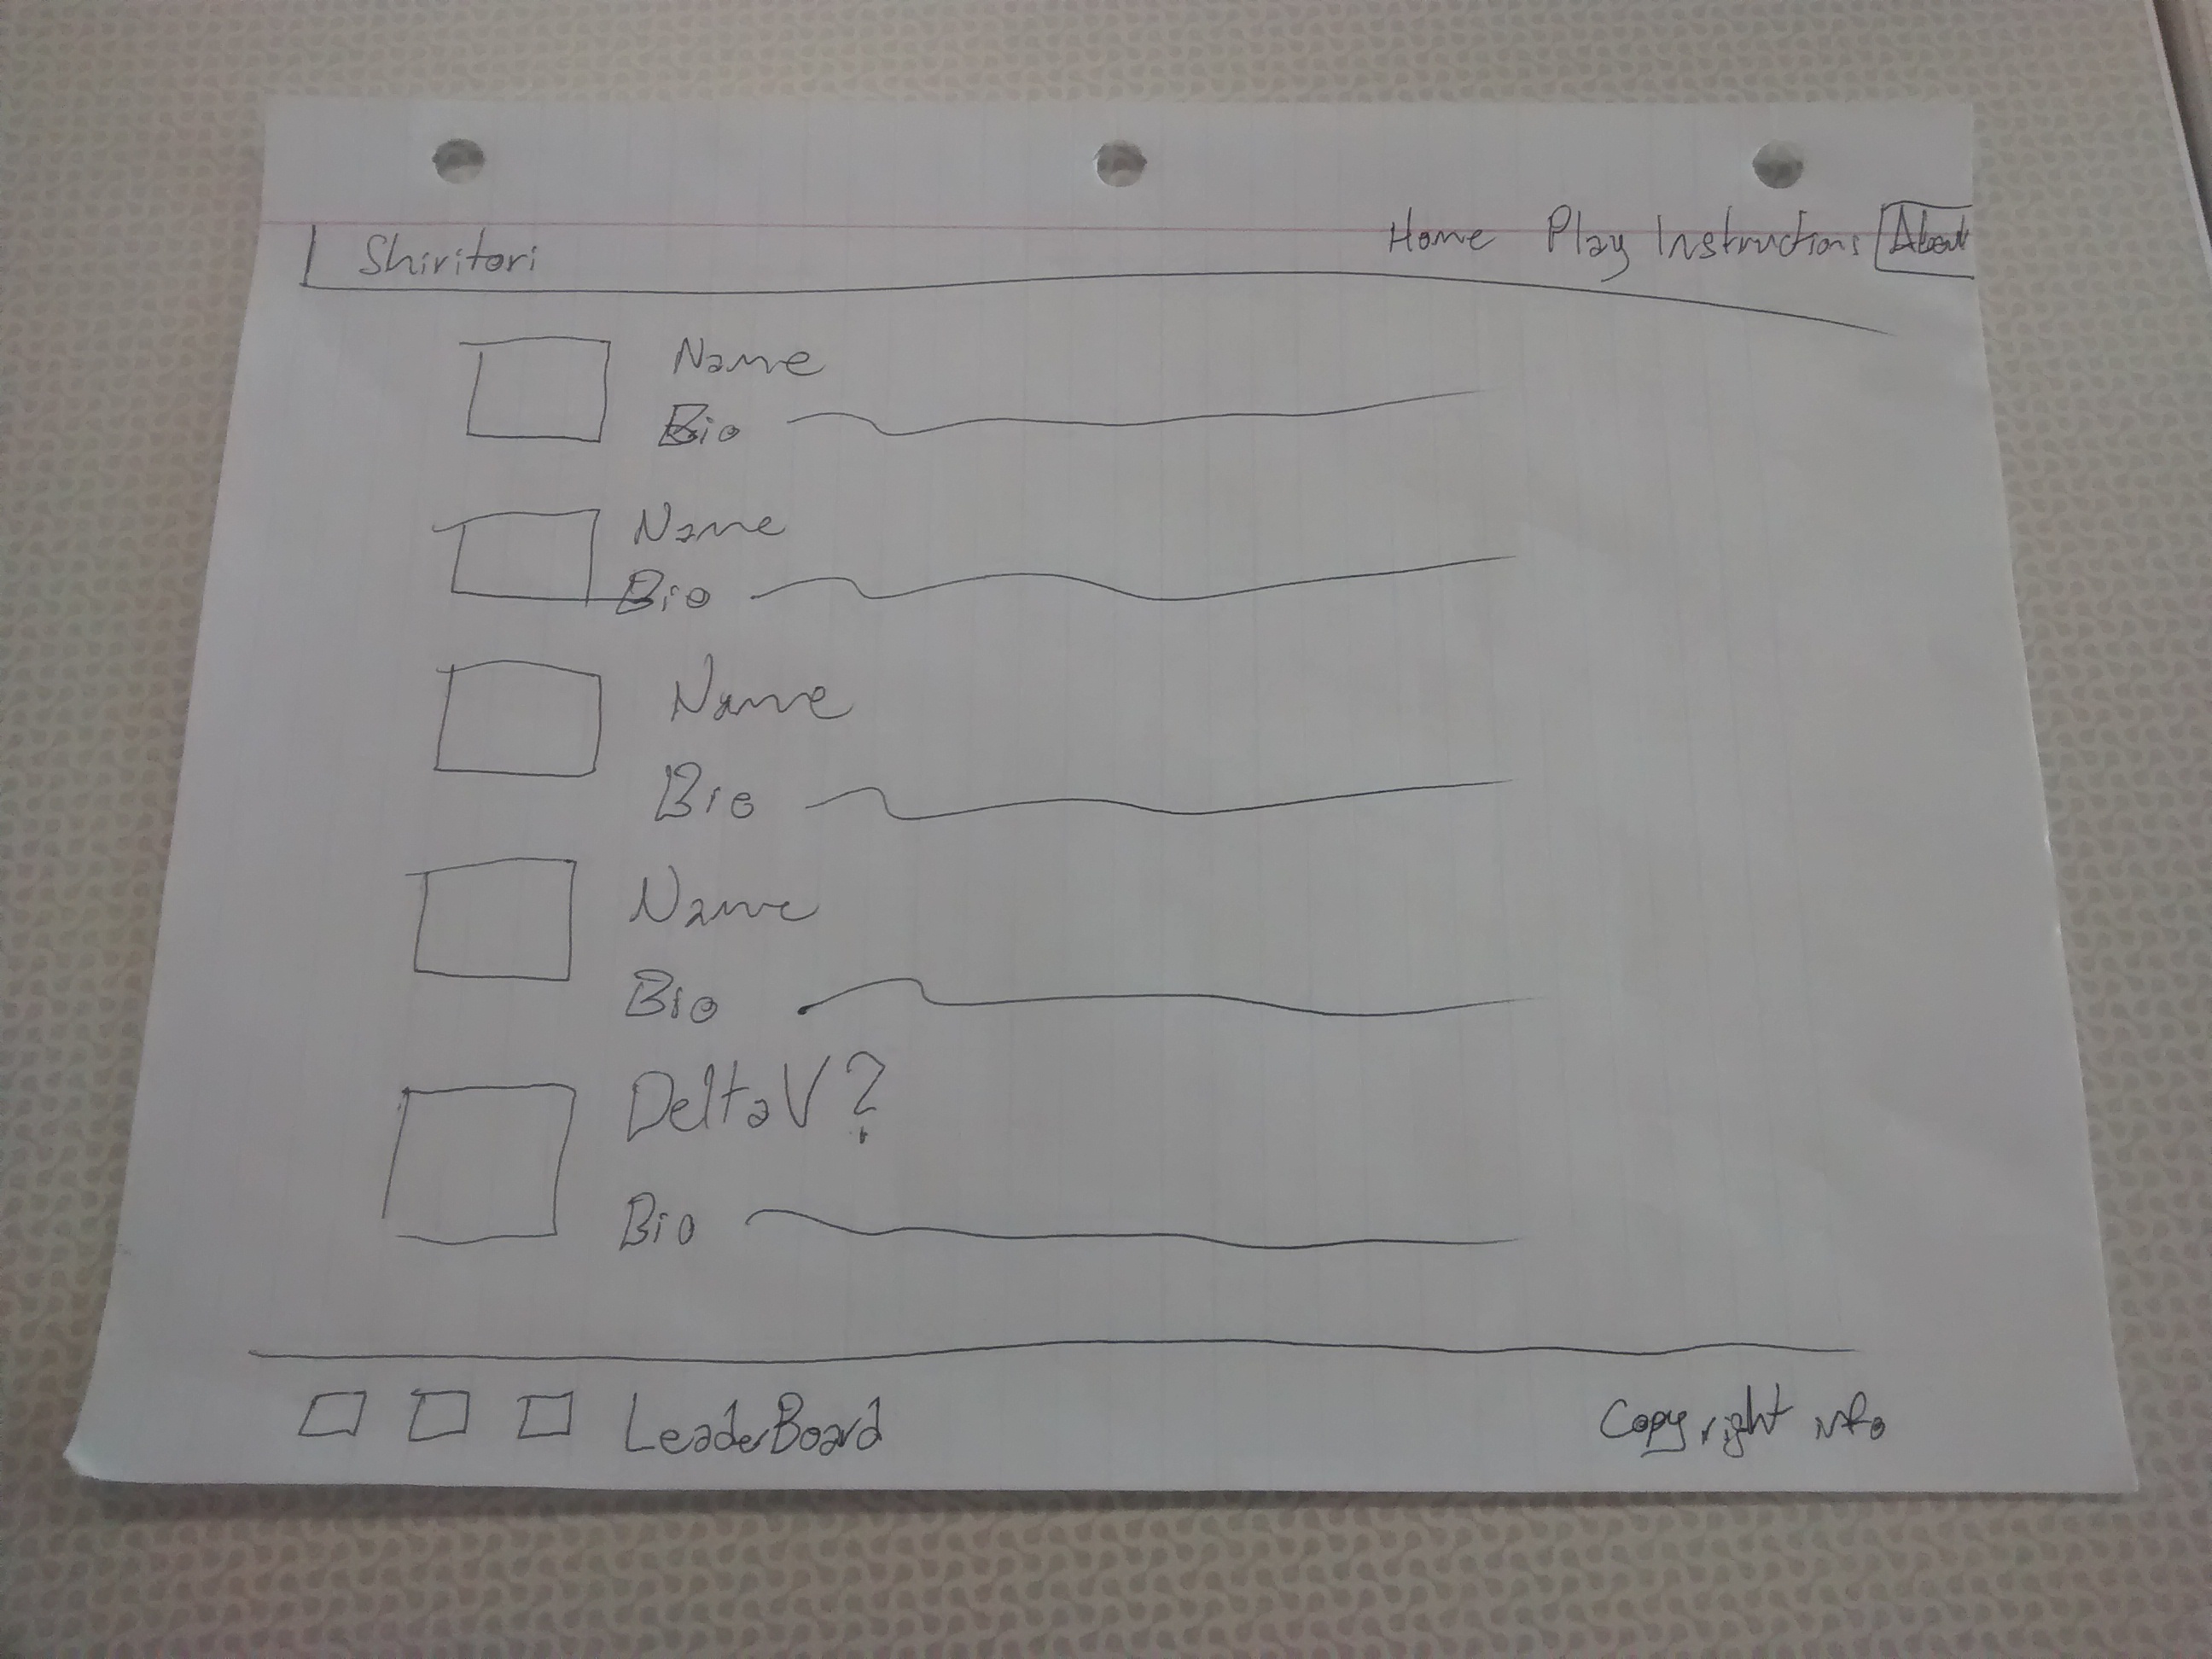 Shiritori Home Play Instructions About
Name
Bio
Name
Bio
Name
Bio
Name
Bio
DeltaV?
Bio
LeaderBoard Copyright info